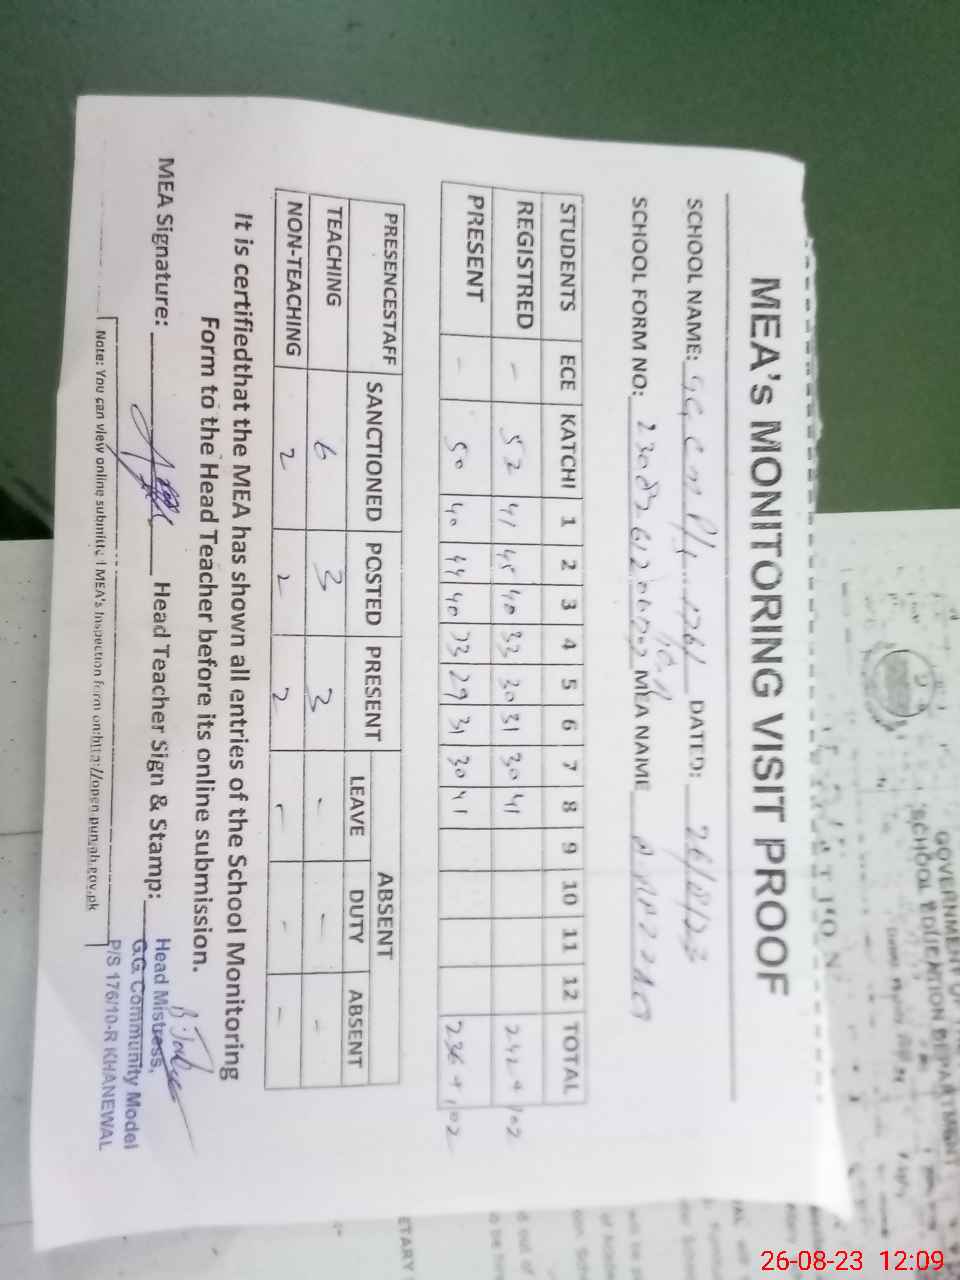 MEA's MONITORING VISIT PROOF
SCHOOL NAME: DATED: 26/8/23
SCHOOL FORM NO: MEA NAME
STUDENTS ECE KATCHI 1 2 3 4 5 6 7 8 9 10 11 12 TOTAL
REGISTRED - 52 41 45 40 33 30 31 30 41 242+102
PRESENT - 50 40 44 40 33 29 31 30 41 236+102
PRESENCESTAFF SANCTIONED POSTED PRESENT ABSENT
LEAVE DUTY ABSENT
TEACHING 6 3 3 - - -
NON-TEACHING 2 2 2 - - -
It is certifiedthat the MEA has shown all entries of the School Monitoring
Form to the Head Teacher before its online submission.
MEA Signature: Head Teacher Sign & Stamp:
Head Mistress,
G.G. Community Model
P/S 176/10-R KHANEWAL
Note: You can view online submitted MEA's Inspection form on:http://open.punjab.gov.pk
GOVERNMENT OF
SCHOOL EDUCATION DEPARTMENT
26-08-23 12:09